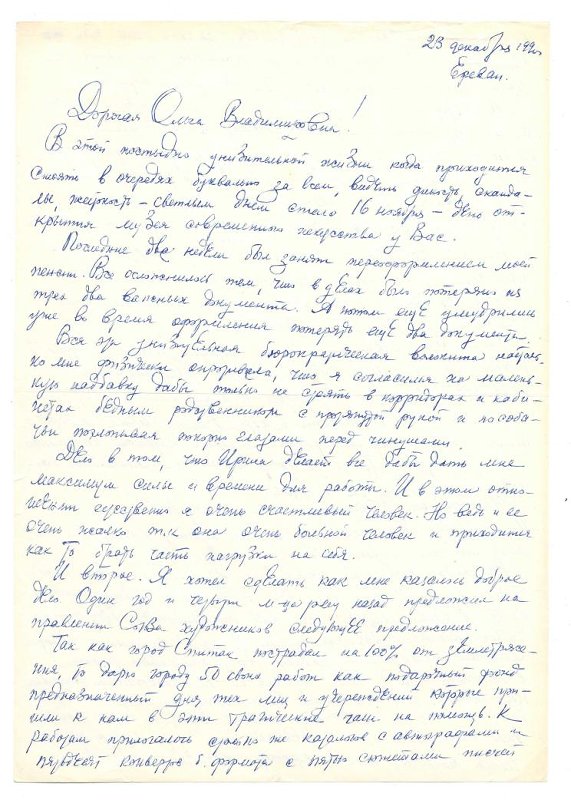 23 декабря 1990
Ереван.
Дорогая Ольга Владимировна!
В этой постыдно унизительной жизни когда приходится
стоять в очередях буквально за всем, видеть дикость, сканда-
лы, жестокость – светлым днем стало 16 ноября – день от-
крытия музея современного искусства у Вас.
Последние две недели был занят переоформлением моей
пенсии. Все осложнилось тем, что в делах было потеряно из
трех два важных документа. А потом еще умудрились
уже во время оформления потерять еще два документа.
Вся эта унизительная бюрократическая волокита настоль-
ко мне физически опротивела, что я согласился на малень-
кую надбавку дабы только не стоять в коридорах и каби-
нетах бедным родственником с протянутой рукой и по соба-
чьи поглотывая покорно глазами перед чинушами.
Дело в том, что Ирина делает все дабы дать мне
максимум силы и времени для работы. И в этом отно-
шении существенно я очень счастливый человек. Но ведь и ее
очень жалко т.к она очень больной человек и приходится
как то брать часть нагрузки на себя.
И второе. Я хотел сделать как мне казалось доброе
дело Один год и четыре м-ца тому назад предложил на
правлении Союза художников следующее предложение
Так как город Спитак пострадал на 100% от землетрясе-
ния, то дарю городу 50 своих работ как подарочный фонд
предназначенный для тех лиц и учереждений которые при-
шли к нам в эти трагические часы на помощь. К
работам прилагалось столько же каталогов с автографами и
конверты б. формата с пятью сюжетами